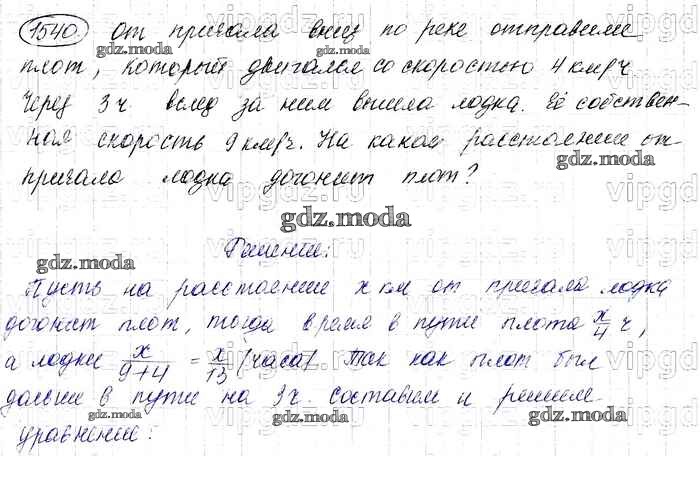 1540. От причала вниз по реке отправили
плот, который двигался со скоростью 4 км/ч
Через 3 ч вслед за ним вышла лодка. Её собствен-
ная скорость 9 км/ч. На каком расстоянии от
причала лодка догонит плот?
Решение:
Пусть на расстоянии x км от причала лодка
догонит плот, тогда время в пути плота x/4 ч,
а лодки x/9+4 = x/13 (часа). Так как плот был
дольше в пути на 3 ч. составим и решим
уравнение:
gdz.moda
gdz.moda
gdz.moda
gdz.moda
gdz.moda
gdz.moda
gdz.moda
gdz.moda
gdz.moda